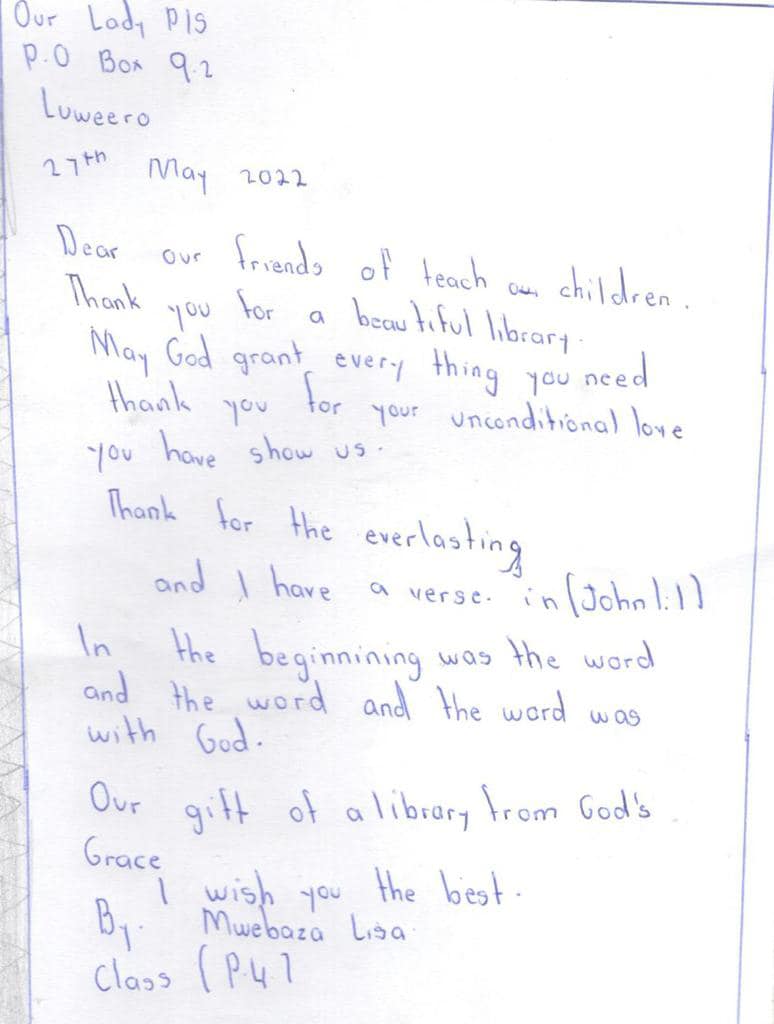 Our Lady P/S
P.O Box 9.2
Luweero
27th May 2022
Dear our friends of teach our children.
Thank you for a beautiful library.
May God grant every thing you need
thank you for your unconditional love
you have show us.
Thank for the everlasting
and I have a verse. in (John 1:1)
In the beginnining was the word
and the word and the word was
with God.
Our gift of a library from God's
Grace
I wish you the best.
By. Mwebaza Lisa
Class (P.4)